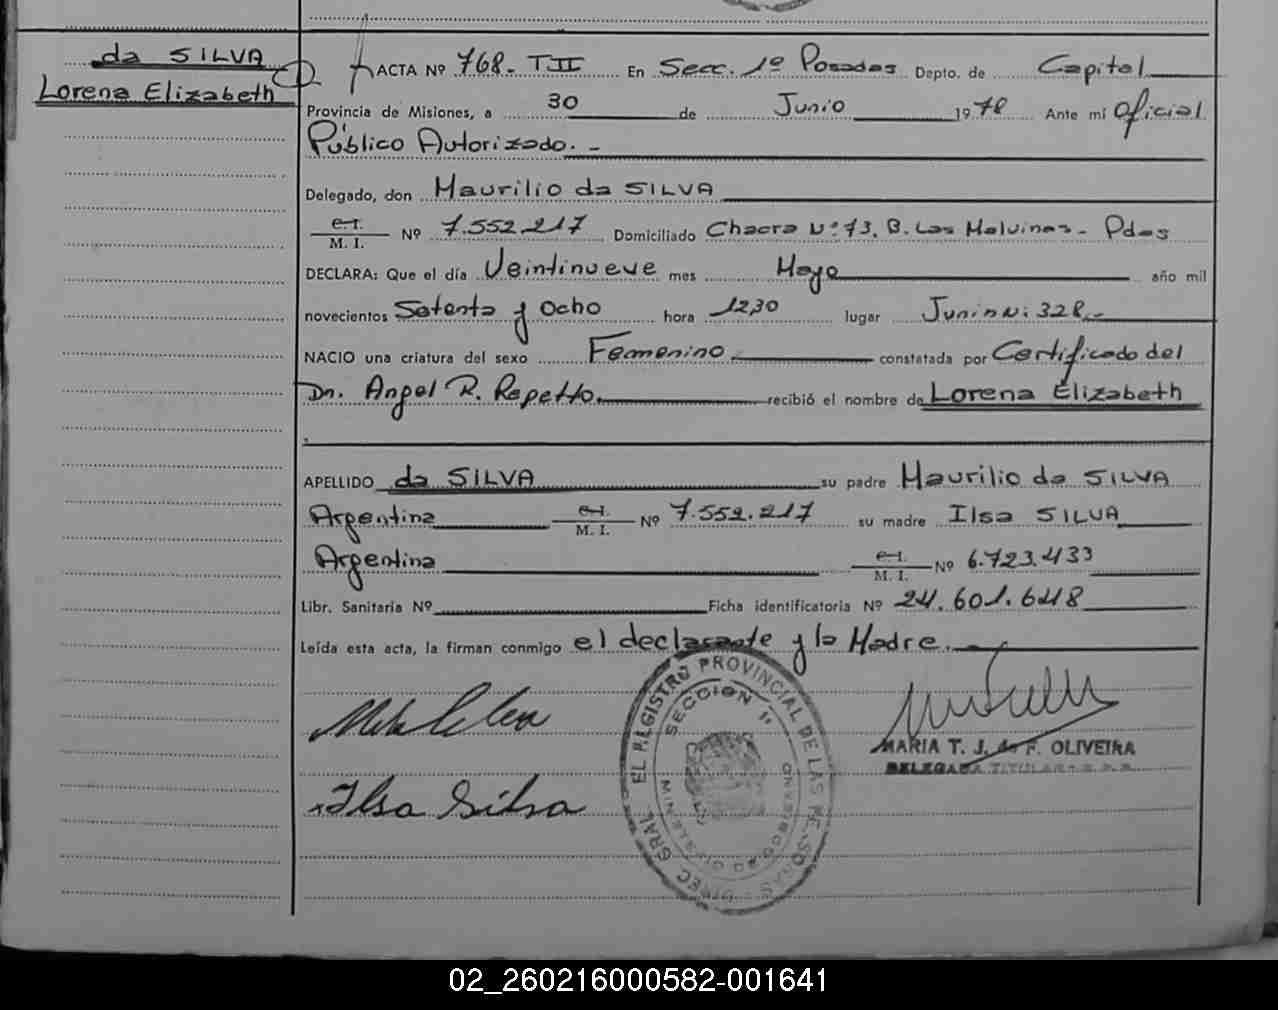 da SILVA
Lorena Elizabeth
ACTA Nº 768- TII En Secc. 1º Posadas Depto. de Capital
Provincia de Misiones, a 30 de Junio 1978 Ante mí Oficial
Público Autorizado. -
Delegado, don Maurilio da SILVA
C. I.
M. I. Nº 7.552.217 Domiciliado Chacra Nº 73. B. Las Malvinas- Pdas
DECLARA: Que el día Veintinueve mes Mayo año mil
novecientos Setenta y Ocho hora 12,30 lugar Junin Nº 328.-
NACIO una criatura del sexo Femenino constatada por Certificado del
Dr. Angel R. Repetto. recibió el nombre de Lorena Elizabeth
APELLIDO da SILVA su padre Maurilio da SILVA
Argentina C. I.
M. I. Nº 7.552.217 su madre Ilsa SILVA
Argentina C. I.
M. I. Nº 6.723.433
Libr. Sanitaria Nº Ficha identificatoria Nº 24.601.648
Leída esta acta, la firman conmigo el declarante y la Madre.
MARIA T. J. de F. OLIVEIRA
DELEGADA TITULAR
Ilsa Silva
DIREC GRAL EL REGISTRO PROVINCIAL DE LAS PERSONAS
SECCION 1ª
MINISTERIO DE GOBIERNO
02_260216000582-001641